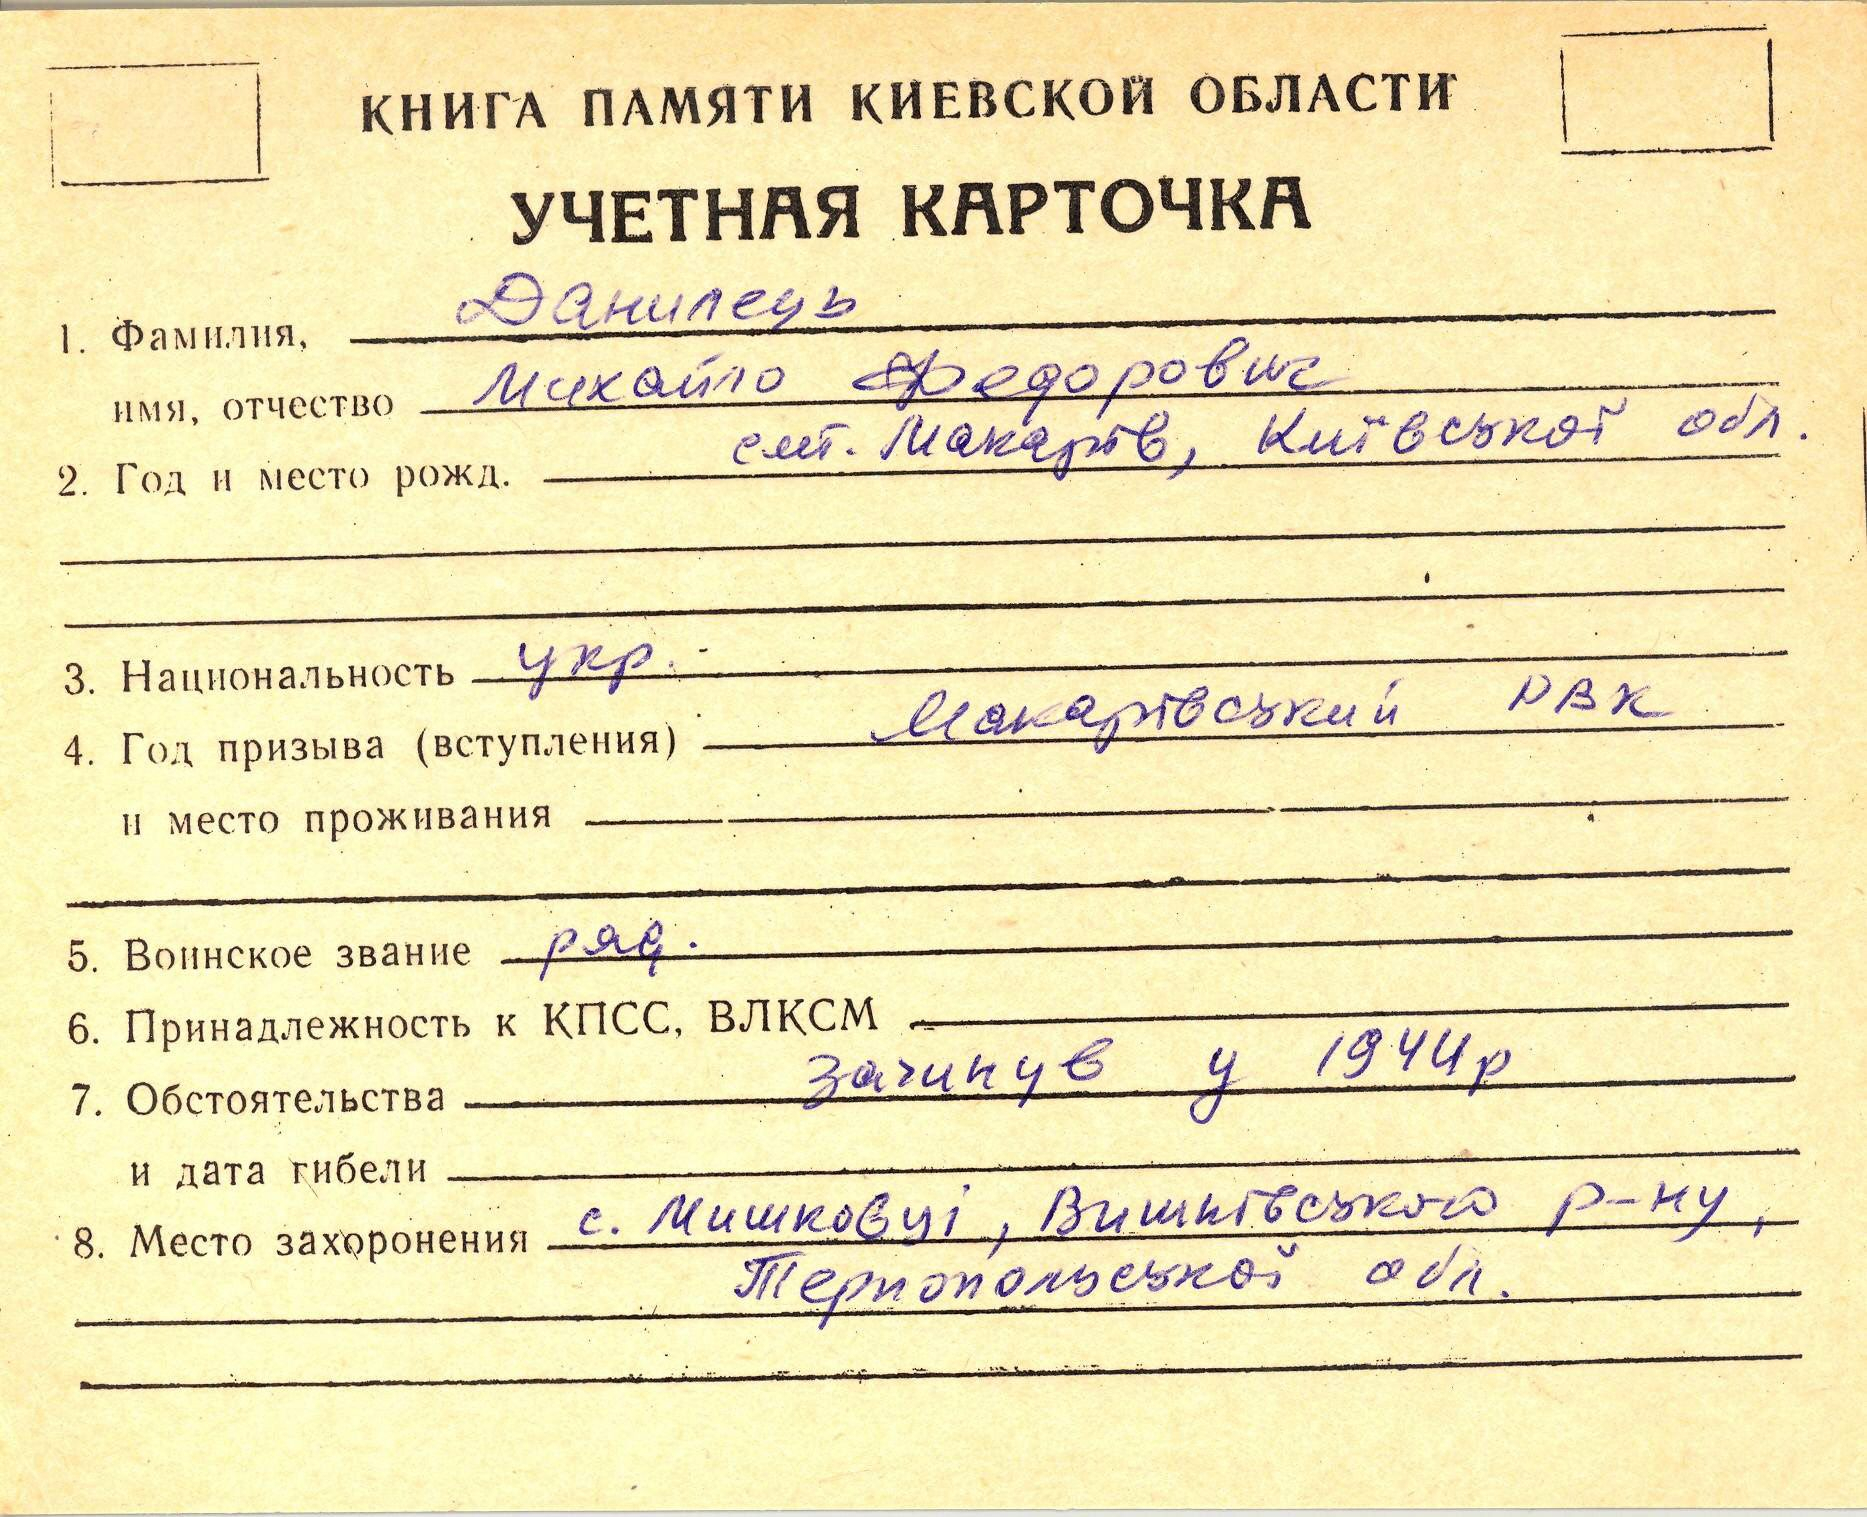 КНИГА ПАМЯТИ КИЕВСКОЙ ОБЛАСТИ
УЧЕТНАЯ КАРТОЧКА
1. Фамилия, Данилець
имя, отчество Михайло Федорович
2. Год и место рожд. смт. Макарів, Київської обл.
3. Национальность укр.
4. Год призыва (вступления) Макарівський РВК
и место проживания
5. Воинское звание ряд.
6. Принадлежность к КПСС, ВЛКСМ
7. Обстоятельства загинув у 1944р
и дата гибели
8. Место захоронения с. Мишковці, Вишнівського р-ну,
Тернопольської обл.